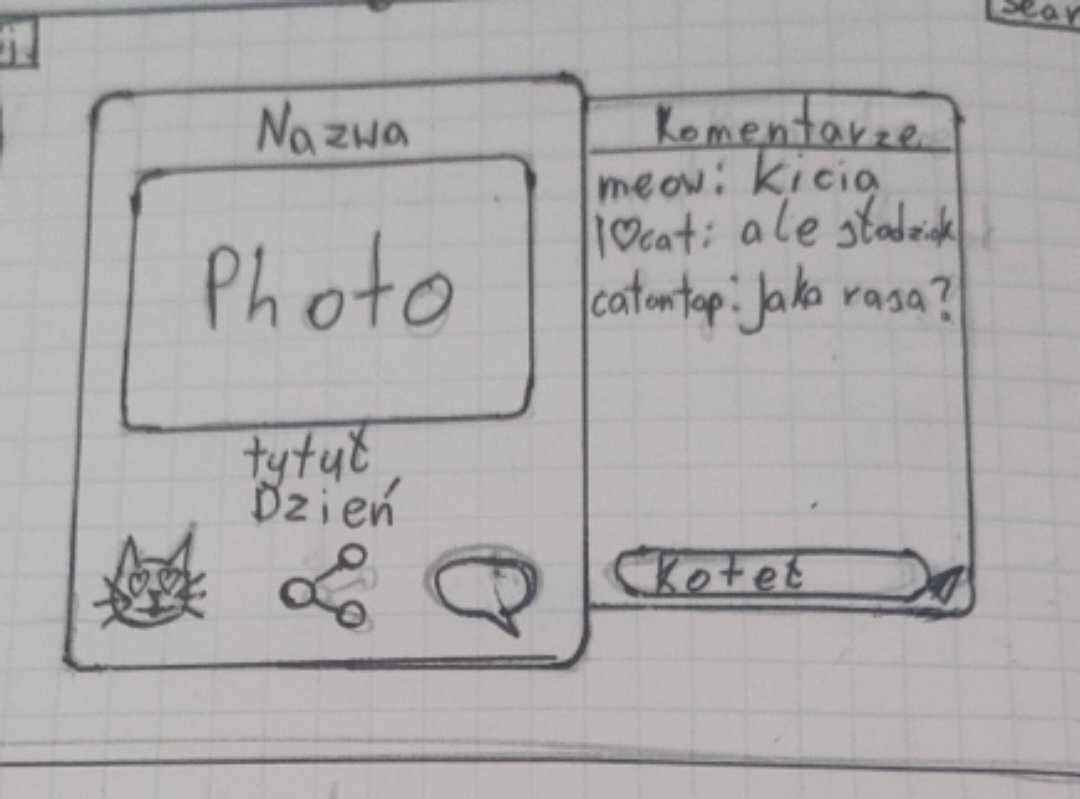 Nazwa
Photo
tytuł
Dzień
Komentarze
meow: Kicia
I♡cat: ale słodziak
catontop: Jaka rasa?
Koteł